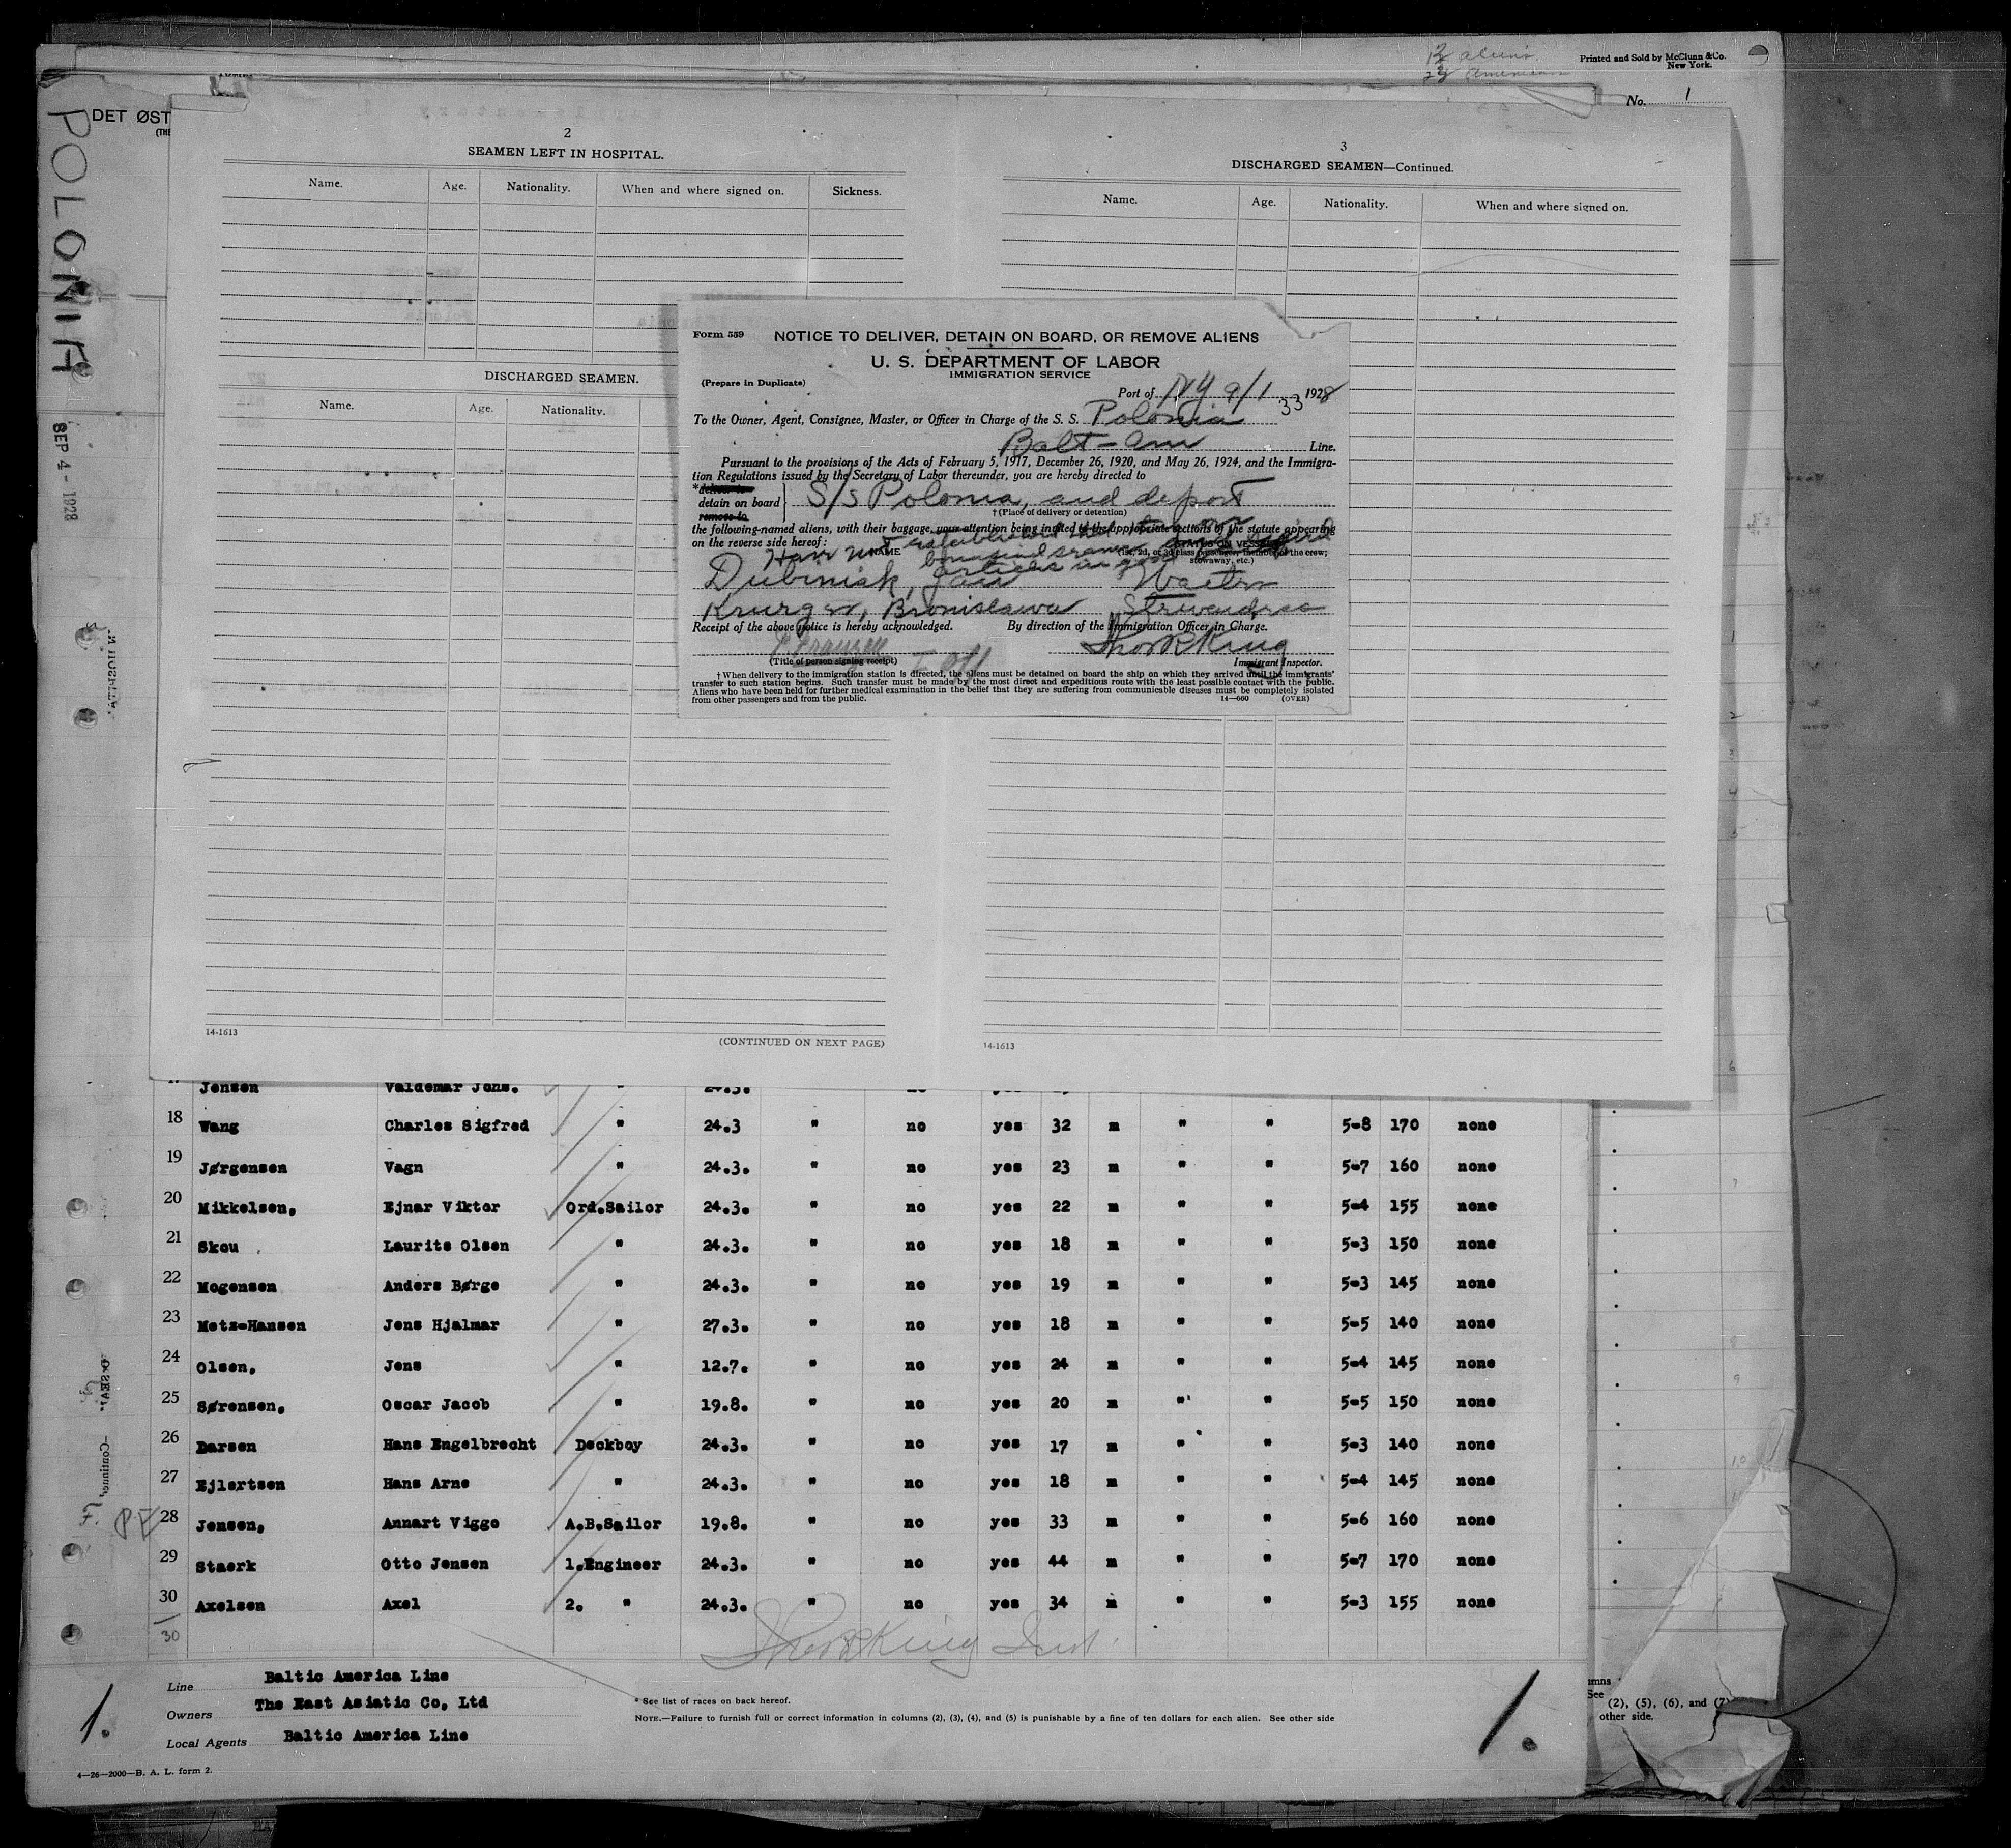 12 aliens
Printed and Sold by McClunn & Co.
New York.
No. 1
DET ØST
(THE
POLONIA
SEP 4 - 1928
2
SEAMEN LEFT IN HOSPITAL.
Name. Age. Nationality. When and where signed on. Sickness.
DISCHARGED SEAMEN.
Name. Age. Nationality.
14-1613
(CONTINUED ON NEXT PAGE)
3
DISCHARGED SEAMEN—Continued.
Name. Age. Nationality. When and where signed on.
14-1613
Form 559 NOTICE TO DELIVER, DETAIN ON BOARD, OR REMOVE ALIENS
U. S. DEPARTMENT OF LABOR
IMMIGRATION SERVICE
(Prepare in Duplicate)
Port of NY 9/1 1928
33
To the Owner, Agent, Consignee, Master, or Officer in Charge of the S. S. Polonia
Balt-Am Line.
Pursuant to the provisions of the Acts of February 5, 1917, December 26, 1920, and May 26, 1924, and the Immigra-
tion Regulations issued by the Secretary of Labor thereunder, you are hereby directed to
*deliver to
detain on board S/S Polonia, and deport
remove to
†(Place of delivery or detention)
the following-named aliens, with their baggage, your attention being invited to the appropriate sections of the statute appearing
on the reverse side hereof:
Have not established
NAME STATUS ON VESSEL
(1st, 2d, or 3d class passenger, member of the crew,
stowaway, etc.)
bona fide seamen
articles in good
Dubiniak, Jan Waiter
Kruger, Bronislawa Stewardess
Receipt of the above notice is hereby acknowledged. By direction of the Immigration Officer in Charge.
Thor R King
(Title of person signing receipt) Immigrant Inspector.
† When delivery to the immigration station is directed, the aliens must be detained on board the ship on which they arrived until the immigrants'
transfer to such station begins. Such transfer must be made by the most direct and expeditious route with the least possible contact with the public.
Aliens who have been held for further medical examination in the belief that they are suffering from communicable diseases must be completely isolated
from other passengers and from the public. 14—660 (OVER)
Jensen Valdemar Johs. " 24.3.
18 Wang Charles Sigfred " 24.3 " no yes 32 m " " 5-8 170 none
19 Jørgensen Vagn " 24.3. " no yes 23 m " " 5-7 160 none
20 Mikkelsen, Ejnar Viktor Ord.Sailor 24.3. " no yes 22 m " " 5-4 155 none
21 Skou Laurits Olsen " 24.3. " no yes 18 m " " 5-3 150 none
22 Mogensen Anders Børge " 24.3. " no yes 19 m " " 5-3 145 none
23 Metz-Hansen Jens Hjalmar " 27.3. " no yes 18 m " " 5-5 140 none
24 Olsen, Jens " 12.7. " no yes 24 m " " 5-4 145 none
25 Sørensen, Oscar Jacob " 19.8. " no yes 20 m " " 5-5 150 none
26 Darsen Hans Engelbrecht Deckboy 24.3. " no yes 17 m " " 5-3 140 none
27 Ejlertsen Hans Arne " 24.3. " no yes 18 m " " 5-4 145 none
28 Jensen, Annart Viggo A.B.Sailor 19.8. " no yes 33 m " " 5-6 160 none
29 Staerk Otto Jensen 1.Engineer 24.3. " no yes 44 m " " 5-7 170 none
30 Axelsen Axel 2. " 24.3. " no yes 34 m " " 5-3 155 none
30
Thor R King Insp.
Line Baltic America Line
Owners The East Asiatic Co, Ltd
Local Agents Baltic America Line
4—26—2000—B. A. L. form 2.
* See list of races on back hereof.
NOTE.—Failure to furnish full or correct information in columns (2), (3), (4), and (5) is punishable by a fine of ten dollars for each alien. See other side
1.
1.
umns
See
(2), (5), (6), and (7)
other side.